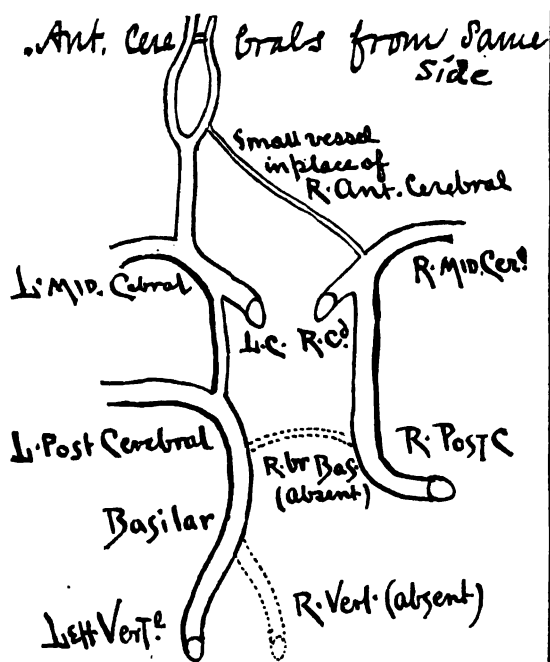 .Ant. Cere=brals from Same
side
Small vessel
in place of
R. Ant. Cerebral
L. Mid. Cebral
R. Mid. Cerl
L.C. R.Cd
L. Post Cerebral
R. Post C
R. br Bas.
(absent)
Basilar
R. Vert. (absent)
Left Verte